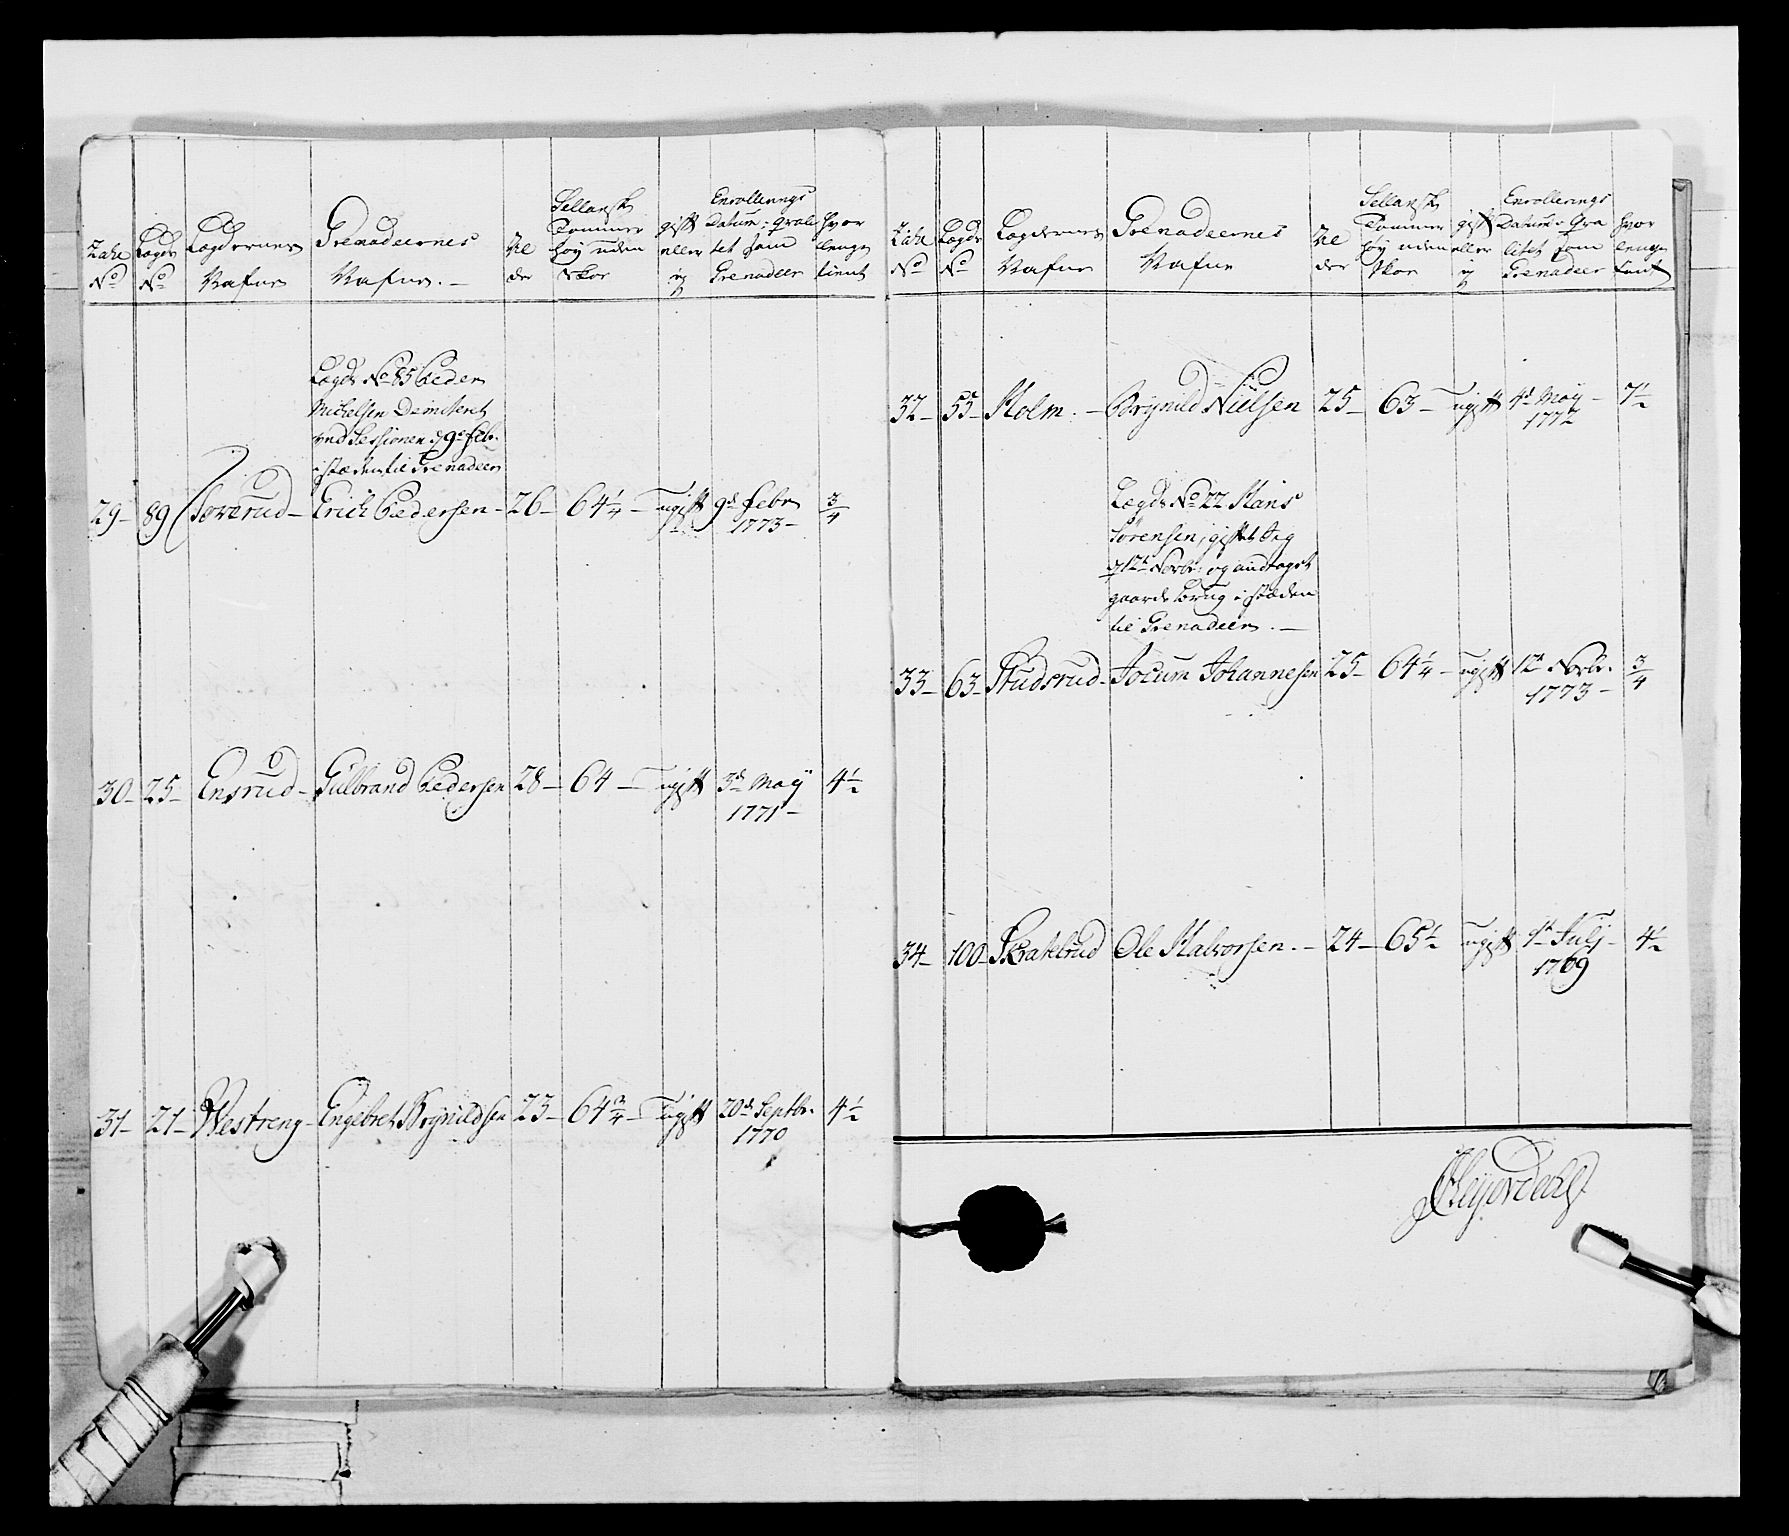 Tahl No
Lægds No
Lægdernes Nafne
Grenadeernes Nafne. —
Al der
Sellansk Tommer høy uden Skoe
gift eller ey
Enrollerings Datum som Grenadeer
hvor lenge tient
Lægds No 85 Peder
Michelsen Dimiteret
ved Sessionen d 9e Febr.
i stæden til Grenadeer
29 – 89 Sørerud – Erich Pedersen – 26 – 64 1/4 – ugift 9de Febr 3/4
1773 –
30 – 25 – Ensrud – Gulbrand Pedersen 28 – 64 – ugift 3de Maÿ 4 1/2
1771 –
31 – 21 – Westreng – Engebret Brynildsen 23 – 64 3/4 – ugift 20de Septbr. 4 1/2
1770
Tahl No
Lægds No
Lægdernes Nafne
Grenadeernes Nafne
Al der
Sellansk Tommer høy uden Skoe
gift eller ey
Enrollerings Datum som Grenadeer
hvor lenge tient
32 – 55 – Holm. – Brynild Nielsen 25 – 63 – ugift 4de Maÿ – 7 1/2
1772
Lægds No 22 Hans
Sørensen, giftet sig
d 12te Novbr: og andtaget
gaards brug i stæden
til Grenadeer. —
33 – 63 – Studsrud – Jocum Johannesen 25 – 64 1/4 – ugift 12te Novbr. 3/4
1773 –
34 – 100 – Skratelrud Ole Halvorsen. – 24 – 65 1/2 ugift 1te Julj – 4 1/2
1769